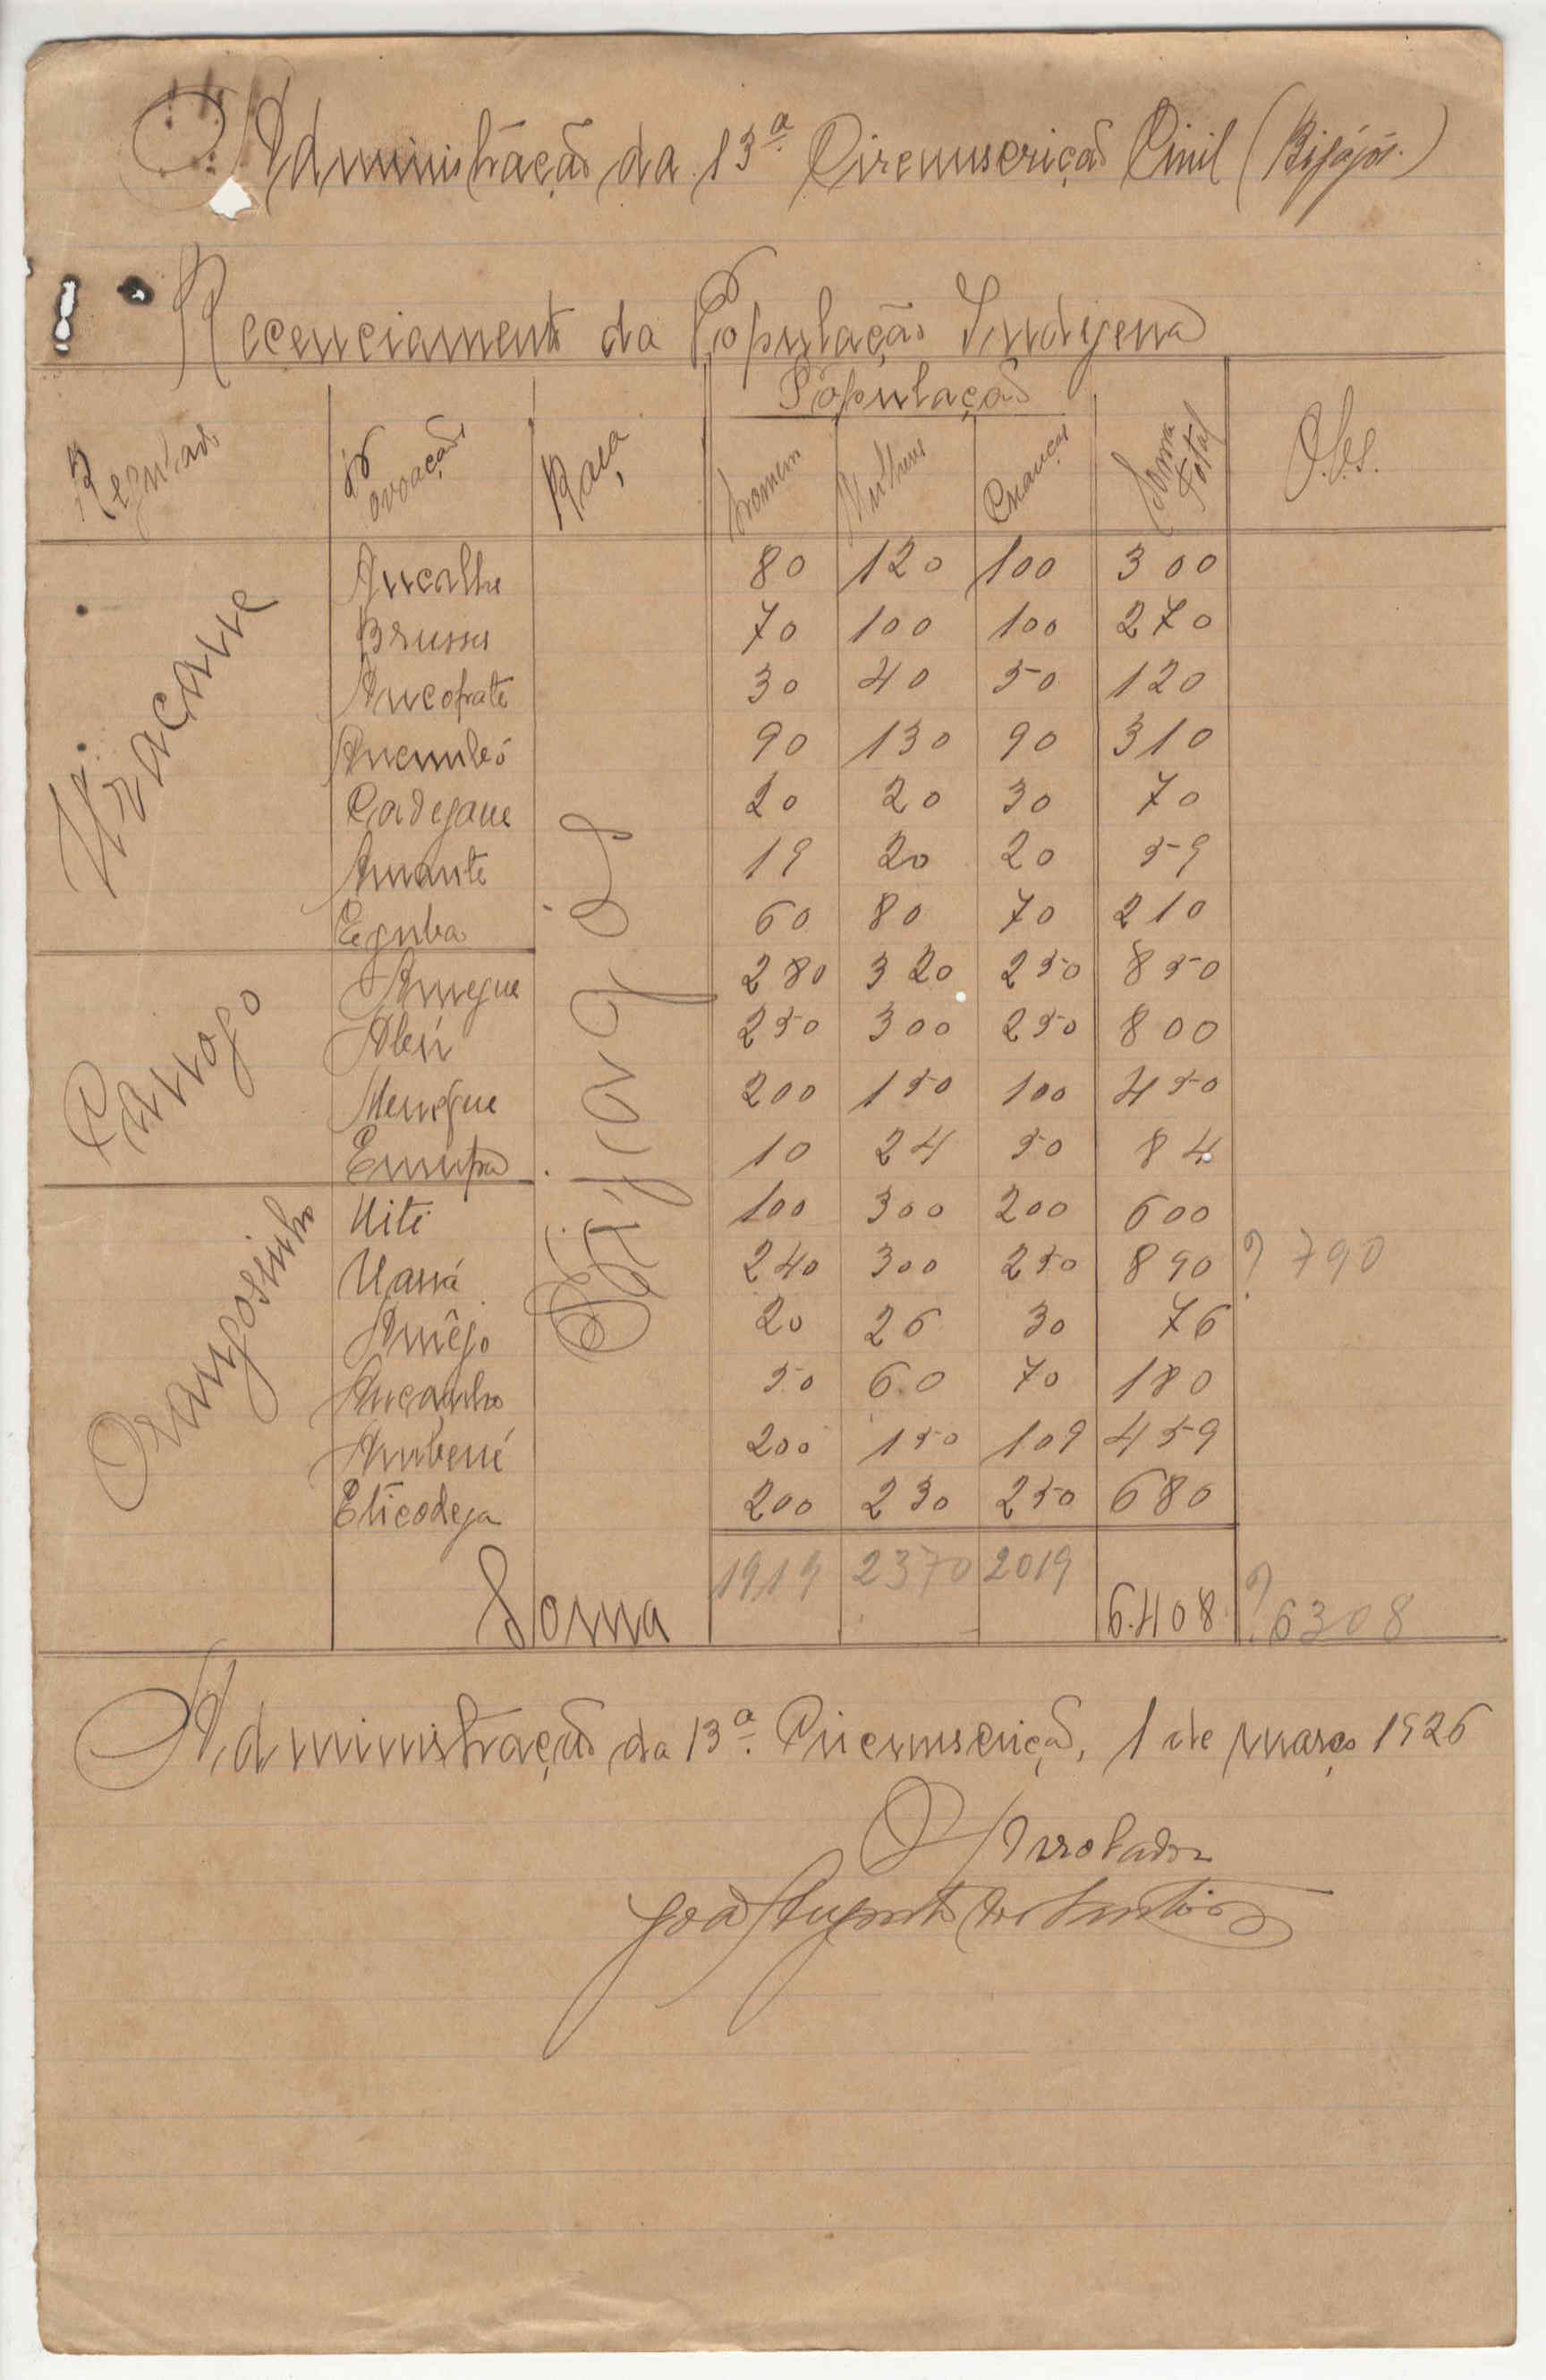 Administração da 13ª Circunscrição Civil (Bijagós.)
Recenciamento da População Indigena
População
Regulado Povoação Raça Homens Mulheres Crianças Soma Total Obs.
Uracane
Ancalha 80 120 100 300
Brussu 70 100 100 270
Ancopate 30 40 50 120
Ancumbó 90 130 90 310
Cadegane 20 20 30 70
Amante 19 20 20 59
Eguba 60 80 70 210
Bijagós
Canogo
Anegue 280 320 250 850
Abú 250 300 250 800
Menegue 200 150 100 450
10 24 50 84
Orangosinho
Uite 100 300 200 600
Uaná 240 300 250 890 ? 790
Anêjo 20 26 30 76
Ancanho 50 60 70 180
Anbené 200 150 109 459
Eticodega 200 230 250 680
Soma 1919 2370 2019 6.408 ? 6308
Administração da 13ª Circunscrição, 1 de março 1926
O Arrolador
João Augusto dos Santos